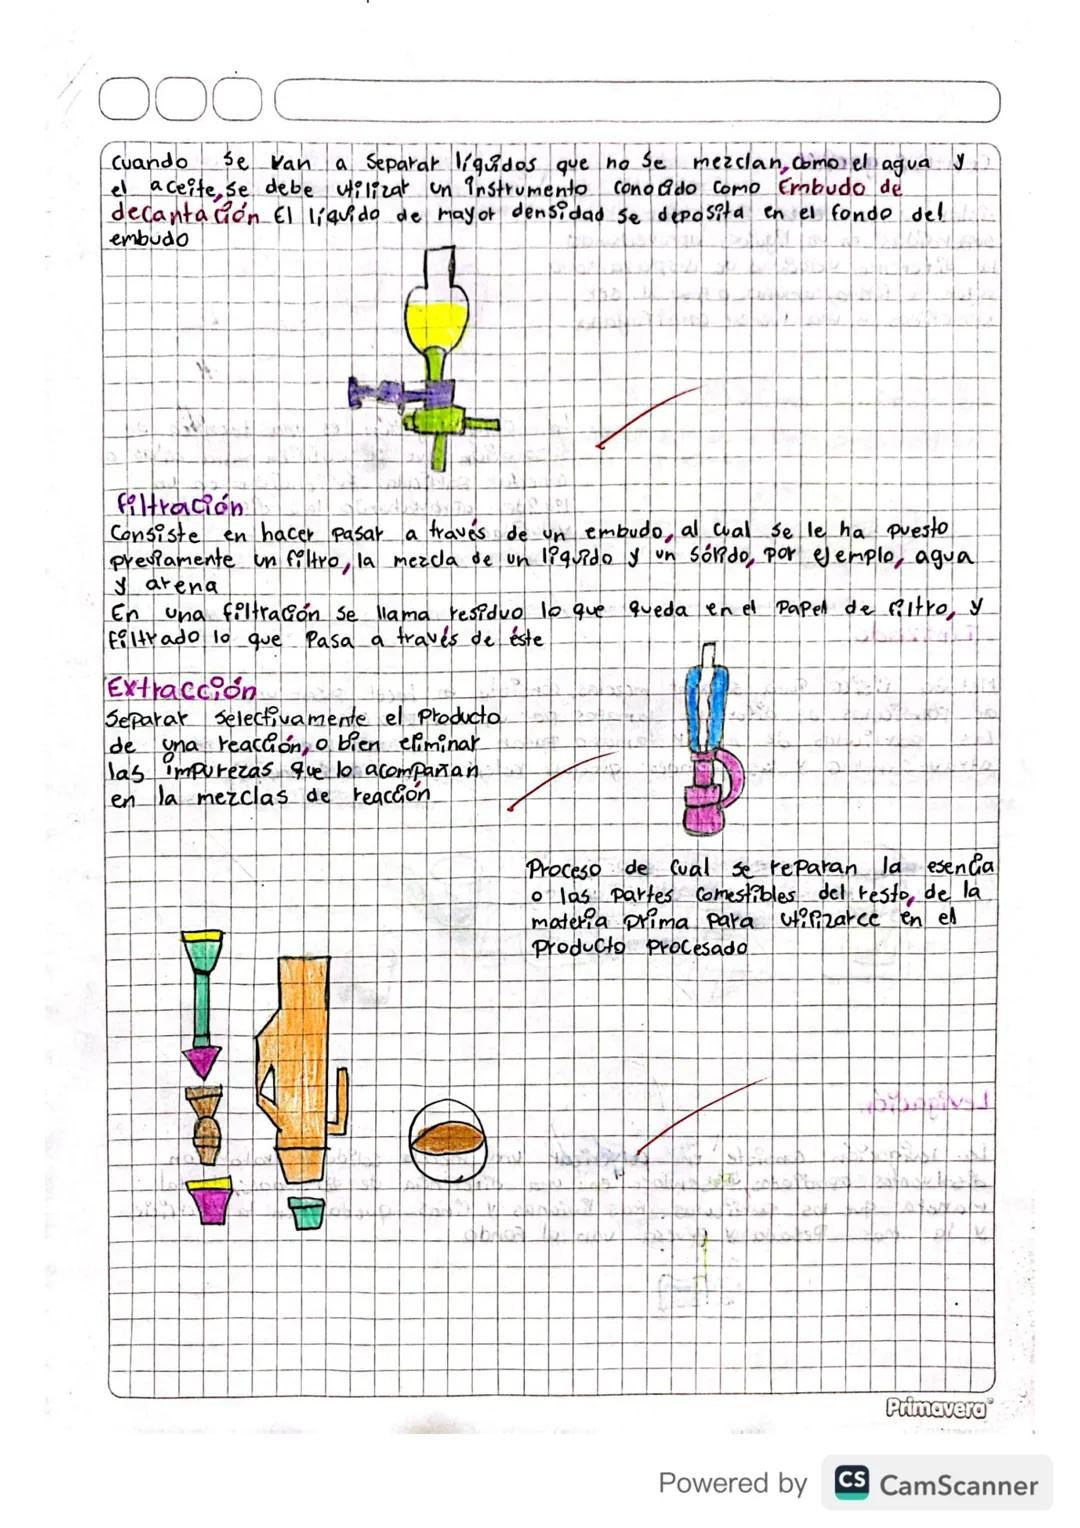 Cuando se van a separar líquidos que no se mezclan, como el agua y
el aceite, se debe utilizar un instrumento conocido como Embudo de
decantación El líquido de mayor densidad se deposita en el fondo del
embudo
filtración
Consiste en hacer pasar a través de un embudo, al cual se le ha puesto
previamente un filtro, la mezcla de un líquido y un sólido, por ejemplo, agua
y arena
En una filtración se llama residuo lo que queda en el papel de filtro, y
filtrado lo que pasa a través de éste
Extracción
Separar selectivamente el producto
de una reacción, o bien eliminar
las impurezas que lo acompañan
en la mezclas de reacción
Proceso de cual se reparan la esencia
o las partes comestibles del resto, de la
materia prima para utilizarce en el
producto procesado
Primavera
Powered by CS CamScanner